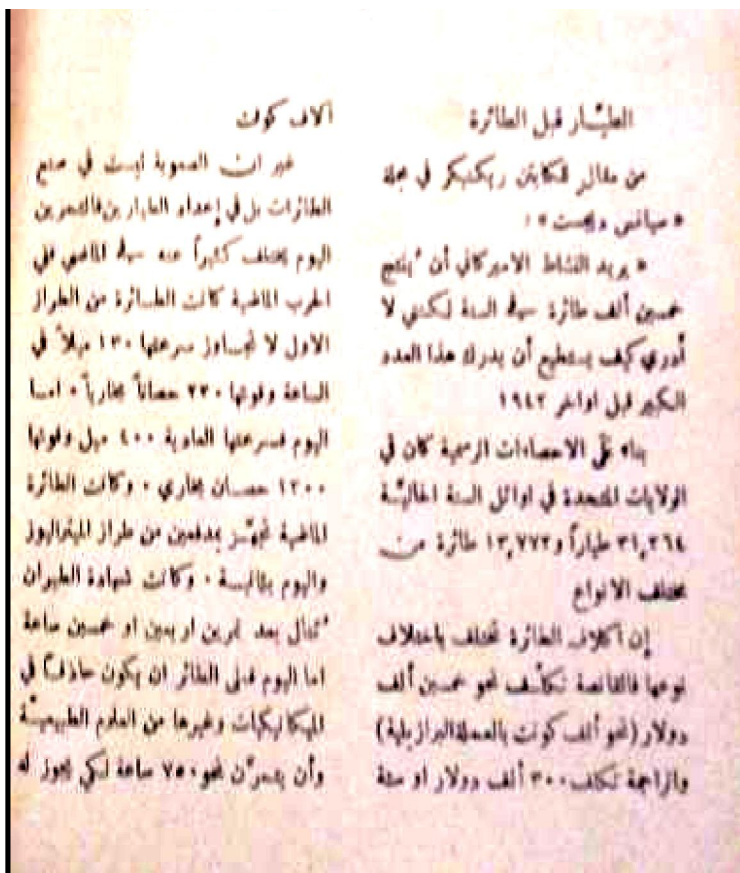 الطيَّار قبل الطائرة
من مقال للكابتن ريكنبكر في مجلة
« سيانس ديجست » :
« يريد النشاط الاميركاني أن يُنتج
خمسين ألف طائرة في السنة لكنني لا
أدري كيف يستطيع أن يدرك هذا العدد
الكبير قبل اواخر ١٩٤٢
بناء على الاحصاءات الرسمية كان في
الولايات المتحدة في اوائل السنة الحاليَّة
٣١,٢٦٤ طياراً و ١٣,٧٧٢ طائرة من
مختلف الانواع
إن أكلاف الطائرة تختلف باختلاف
نوعها فالقانصة تكلّف نحو خمسين ألف
دولار (نحو ألف كونت بالعملة البرازيلية)
والزاجمة تكلف ٣٠٠ ألف دولار او ستة
آلاف كونت
غير ان الصعوبة ليست في صنع
الطائرات بل في إعداد الطيارين فالتمرين
اليوم يختلف كثيراً عنه في الماضي ففي
الحرب الماضية كانت الطائرة من الطراز
الاول لا تتجاوز سرعتها ١٣٠ ميلاً في
الساعة وقوتها ٢٢٠ حصاناً بخارياً ٠ اما
اليوم فسرعتها العادية ٤٠٠ ميل وقوتها
١٢٠٠ حصان بخاري ٠ وكانت الطائرة
الماضية تجهَّز بمدفعين من طراز الميتراليوز
واليوم بثمانية ٠ وكانت شهادة الطيران
تُنال بعد تمرين اربعين او خمسين ساعة
اما اليوم فعلى الطائر ان يكون حاذقاً في
الميكانيكيات وغيرها من العلوم الطبيعيَّة
وأن يتمرَّن نحو ٧٥٠ ساعة لكي يجوز له